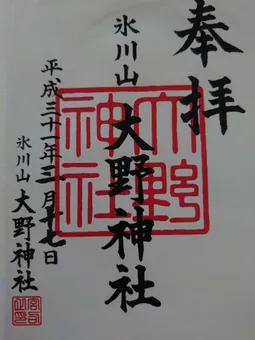 奉拝
氷川山
大野神社
大野
神社
平成三十一年三月十七日
氷川山
大野神社